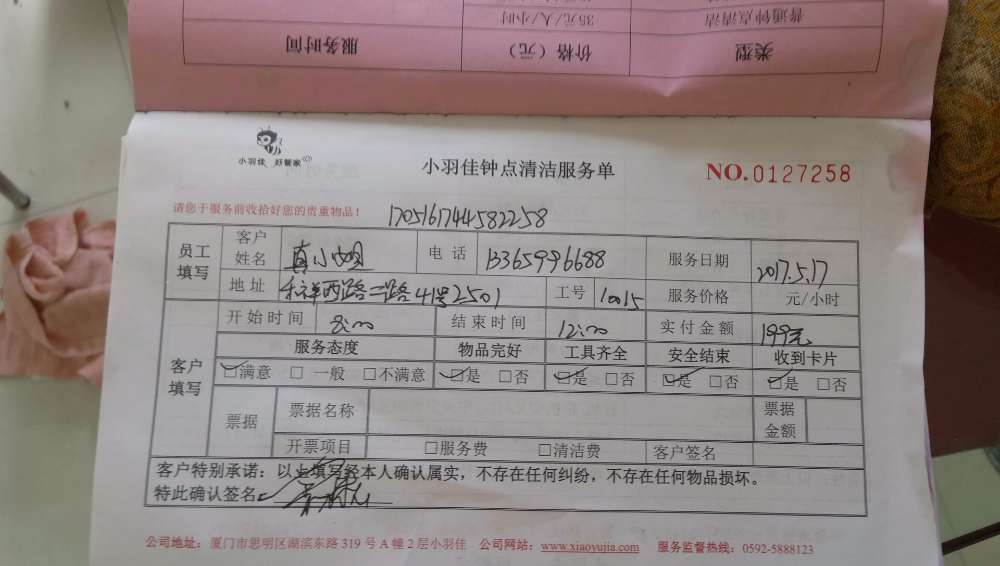 普通钟点清洁 35元/人/小时
类型 价格（元） 服务时间
小羽佳 好管家
小羽佳钟点清洁服务单
NO.0127258
请您于服务前收拾好您的贵重物品！ 1705161744582258
员工填写 客户姓名 真小姐 电话 13365996688 服务日期 2017.5.17
地址 禾祥西路二路41号2501 工号 10015 服务价格 元/小时
客户填写 开始时间 8:00 结束时间 12:00 实付金额 199元
服务态度 物品完好 工具齐全 安全结束 收到卡片
☑满意 □一般 □不满意 ☑是 □否 ☑是 □否 ☑是 □否 ☑是 □否
票据 票据名称 票据金额
开票项目 □服务费 □清洁费 客户签名
客户特别承诺：以上填写经本人确认属实，不存在任何纠纷，不存在任何物品损坏。
特此确认签名：
公司地址：厦门市思明区湖滨东路319号A幢2层小羽佳 公司网站：www.xiaoyujia.com 服务监督热线：0592-5888123